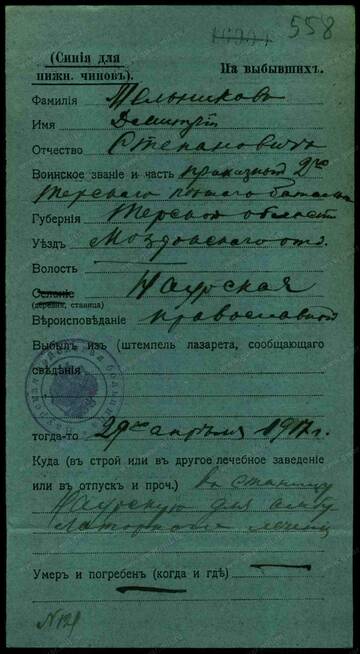 558
(Синія для
нижн. чиновъ).
На выбывшихъ.
Фамилія Мельниковъ
Имя Дмитрій
Отчество Степановичъ
Воинское званіе и часть приказный 2го
Терскаго пѣшаго баталіона
Губернія Терской области
Уѣздъ Моздокскаго отд.
Волость
Селеніе Наурская
(деревня, станица)
Вѣроисповѣданіе православный
Выбылъ изъ (штемпель лазарета, сообщающаго
свѣдѣнія
тогда-то 29го апрѣля 1917 г.
Куда (въ строй или въ другое лечебное заведеніе
или въ отпускъ и проч.) въ станицу
Наурскую для амбу
латорнаго лечен
Умеръ и погребенъ (когда и гдѣ)